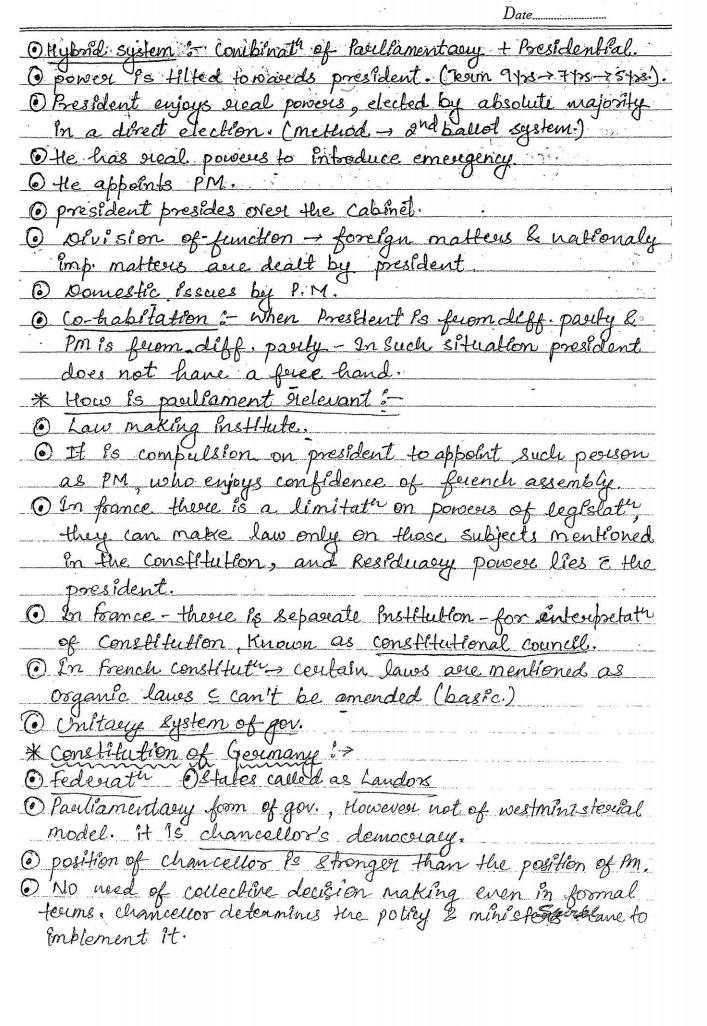 Date................
⊙ Hybrid system :- Combinatⁿ of Parliamentary + Presidential.
⊙ power is tilted towards president. (Term 9yrs→7yrs→5yrs.).
⊙ President enjoys real powers, elected by absolute majority
in a direct election. (method → 2nd ballot system.)
⊙ He has real powers to introduce emergency.
⊙ He appoints PM.
⊙ president presides over the Cabinet.
⊙ Division of-function → foreign matters & nationaly
imp. matters are dealt by president.
⊙ Domestic issues by P.M.
⊙ Co-habitation :- when President is from diff. party &
PM is from diff. party - In such situation president
does not have a free hand.
* How is parliament relevant :-
⊙ Law making institute.
⊙ It is compulsion on president to appoint such person
as PM, who enjoys confidence of french assembly.
⊙ In france there is a limitatⁿ on powers of legislatⁿ,
they can make law only on those subjects mentioned
in the Constitution, and Residuary power lies c̄ the
president.
⊙ In france - there is separate institution - for interpretatⁿ
of Constitution, Known as constitutional council.
⊙ In french constitutⁿ → certain laws are mentioned as
organic laws c can't be amended (basic.)
⊙ Unitary system of gov.
* Constitution of Germany :→
⊙ Federatⁿ ⊙ States called as Landors
⊙ Parliamentary form of gov., However not of westministerial
model. it is chancellor's democracy.
⊙ position of chancellor is stronger than the position of PM.
⊙ No need of collective decision making even in formal
terms. chancellor determines the policy & ministers have to
implement it.